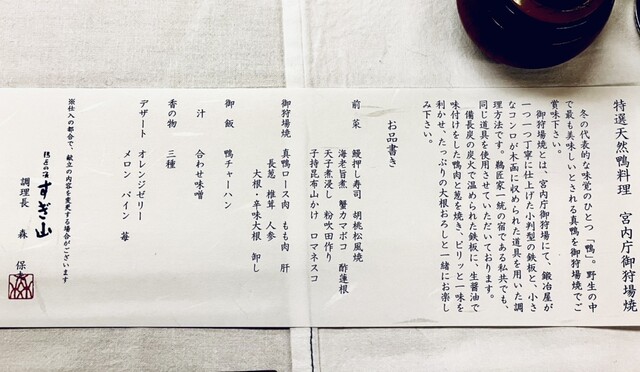 特選天然鴨料理　宮内庁御狩場焼
冬の代表的な味覚のひとつ「鴨」。野生の中
で最も美味しいとされる真鴨を御狩場焼でご
賞味下さい。
御狩場焼とは、宮内庁御狩場にて、鍛冶屋が
一つ一つ丁寧に仕上げた小判型の鉄板と、小さ
なコンロが木画に収められた道具を用いた調
理方法です。鵜匠家一統の宿である私共でも、
同じ道具を使用させていただいております。
備長炭の炭火で温められた鉄板に、生醤油で
味付けをした鴨肉と葱を焼き、ピリッと一味を
利かせ、たっぷりの大根おろしと一緒にお楽し
み下さい。
お品書き
前菜　鰻押し寿司　胡桃松風焼
海老旨煮　蟹カマボコ　酢蓮根
天子煮浸し　粉吹田作り
子持昆布山かけ　ロマネスコ
御狩場焼　真鴨ロース肉　もも肉　肝
長葱　椎茸　人参
大根・辛味大根　卸し
御飯　鴨チャーハン
汁　合わせ味噌
香の物　三種
デザート　オレンジゼリー
メロン　パイン　苺
※仕入の都合で、献立の内容を変更する場合がございます
すぎ山
調理長　森　保